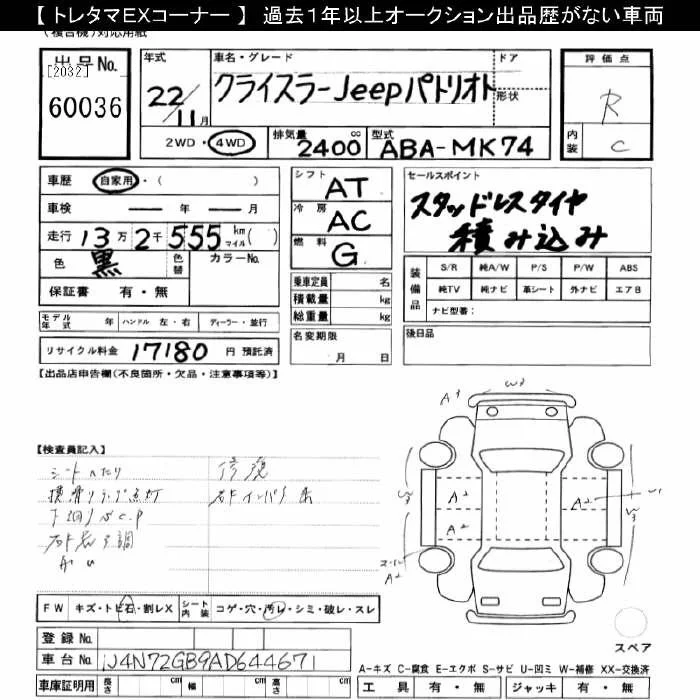 【 トレタマEXコーナー 】 過去1年以上オークション出品歴がない車両
(複合機)対応用紙
出品No. [2032] 60036
年式 22/11月
車名・グレード クライスラーJeepパトリオット
ドア 形状
2WD・4WD 排気量 2400 cc 型式 ABA-MK74
評価点 R
内装 C
車歴 自家用・( )
車検 ― 年 ― 月
走行 13万2千555 km マイル( )
色 黒 色替 カラーNo.
保証書 有・無
シフト AT
冷房 AC
燃料 G
乗車定員 名
積載量 kg
総重量 kg
セールスポイント
スタッドレスタイヤ
積み込み
装備品 S/R 純A/W P/S P/W ABS
純TV 純ナビ 革シート 外ナビ エアB
ナビ型番：
モデル年式 年 ハンドル 左・右 ディーラー・並行
リサイクル料金 17180 円 預託済
名変期限 月 日
後日品
【出品店申告欄(不良箇所・欠品・注意事項等)】
【検査員記入】
シートヘたり
修復
下回りS C.P
A3 W3
A2 A2 W1
W3 W3
A2
A2
FW キズ・トビ石・割レX シート内装 コゲ・穴・汚レ・シミ・破レ・スレ
登録No.
車台No. 1J4N72GB9AD644671
車庫証明用 長さ cm 幅 cm 高さ cm
スペア
A-キズ C-腐食 E-エクボ S-サビ U-凹ミ W-補修 XX-交換済
工具 有・無 ジャッキ 有・無